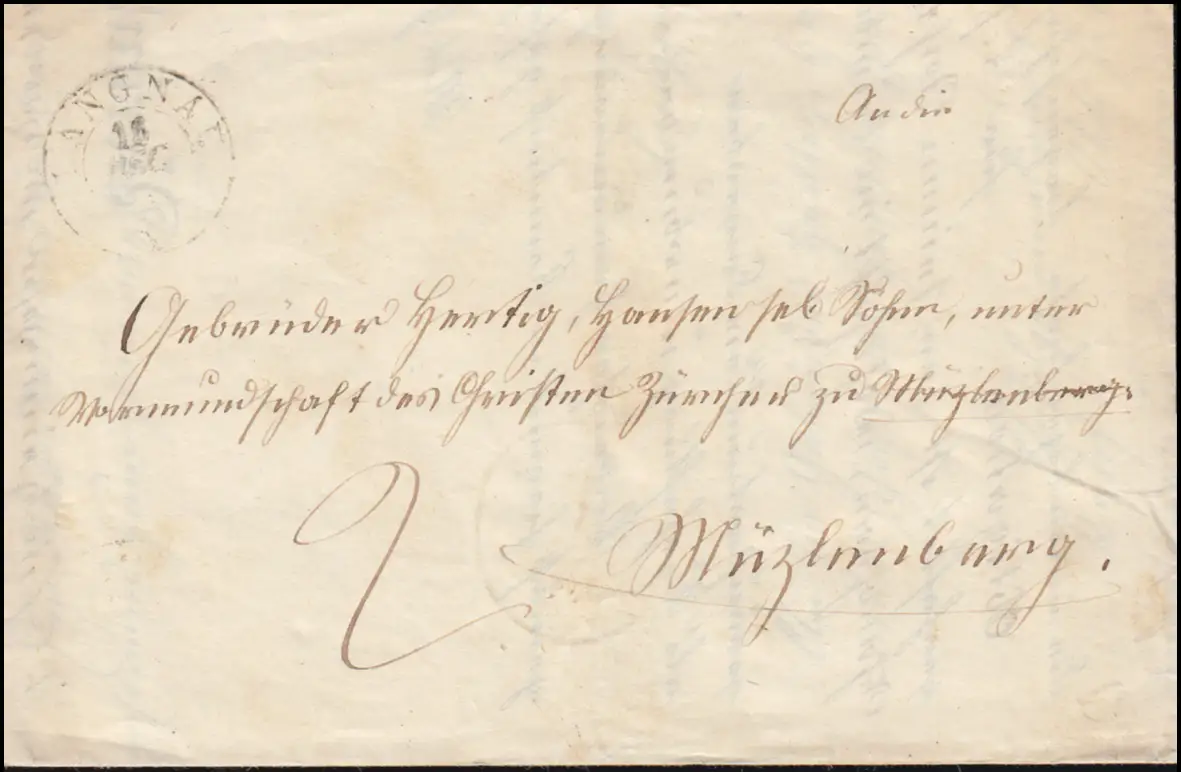 ANGNAF
18
DEC
An die
Gebrüder Hertig, Hansen sel Sohne, unter
Vormundschaft des Christen Zürcher zu Müzlenberg.
2
Müzlenberg.